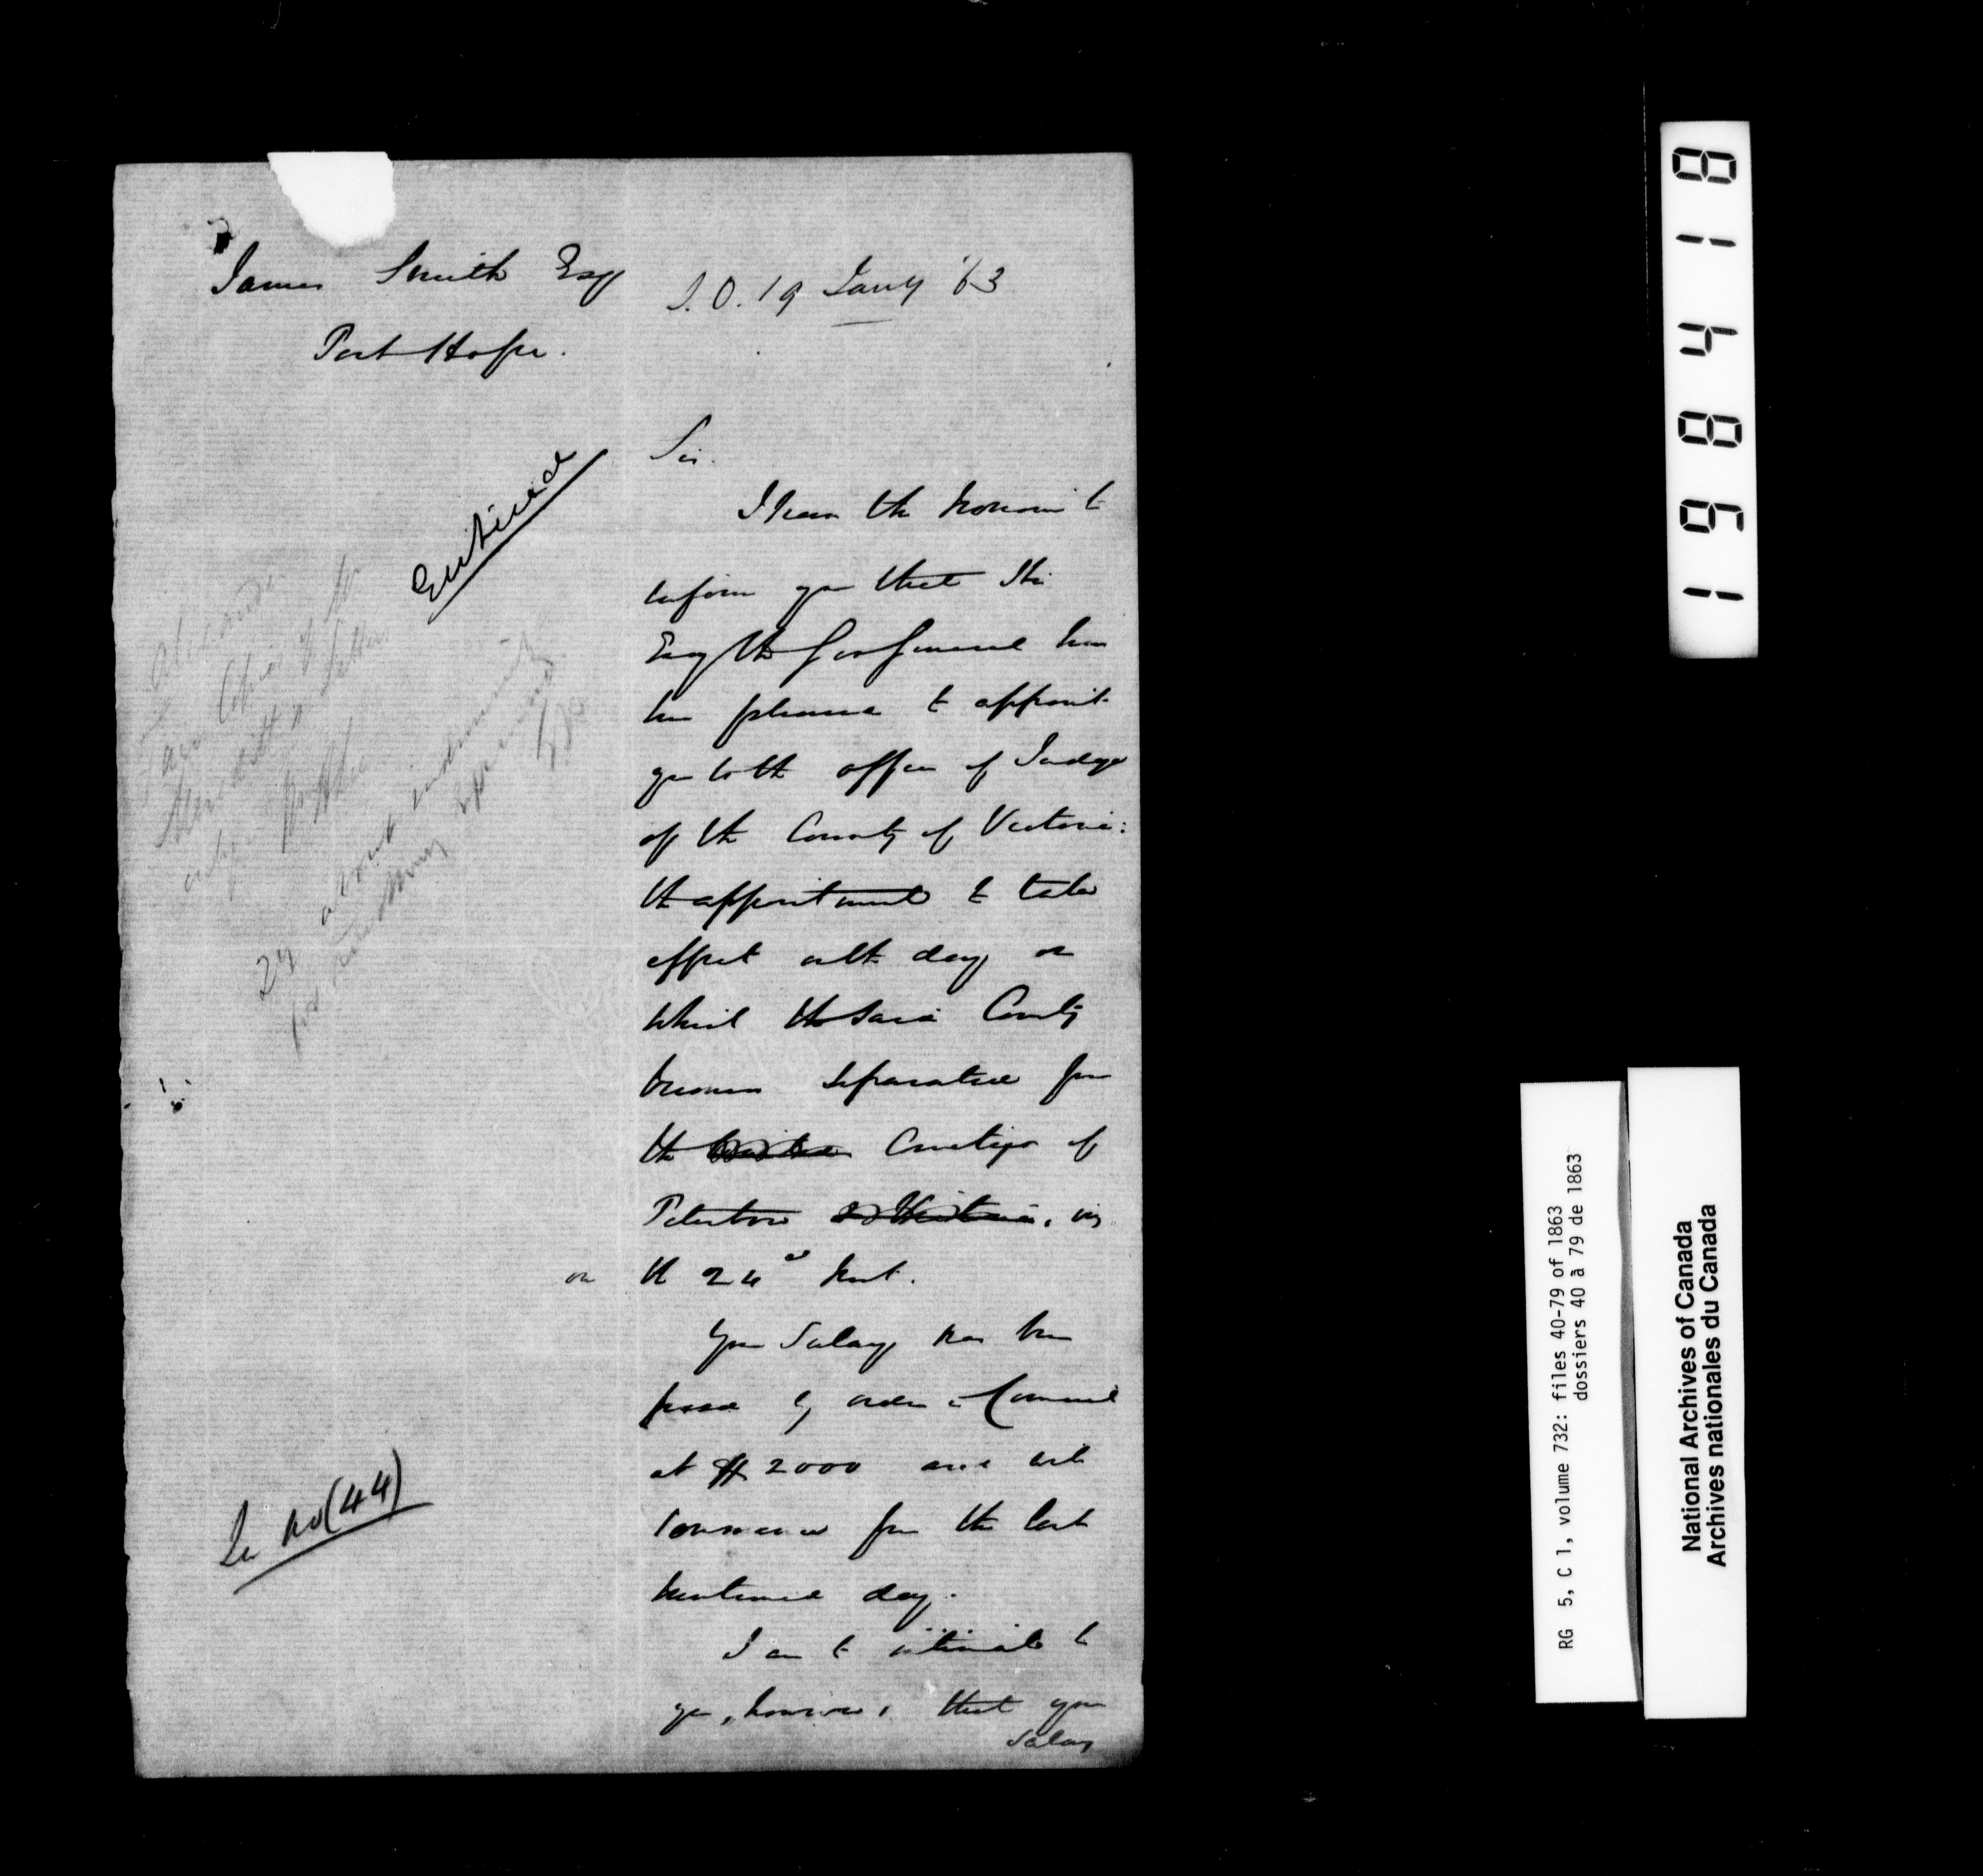 James Smith Esq
Port Hope.
S.O. 19 Jany '63
Entered
Sir.
I have the honour to
inform you that His
Exy the Gov General has
been pleased to appoint
you to the office of Judge
of the County of Victoria:
the appointment to take
effect on the day on
which the said County
becomes separated from
the Counties of
Peterboro & Victoria, viz
on the 24th inst.
Your Salary has been
fixed by order in Council
at $2000 and will
commence from the last
mentioned day.
I am to intimate to
you, however, that your
Salary
In no (44)
about
196 4 8 1 8
RG 5, C 1, volume 732: files 40-79 of 1863
dossiers 40 à 79 de 1863
National Archives of Canada
Archives nationales du Canada